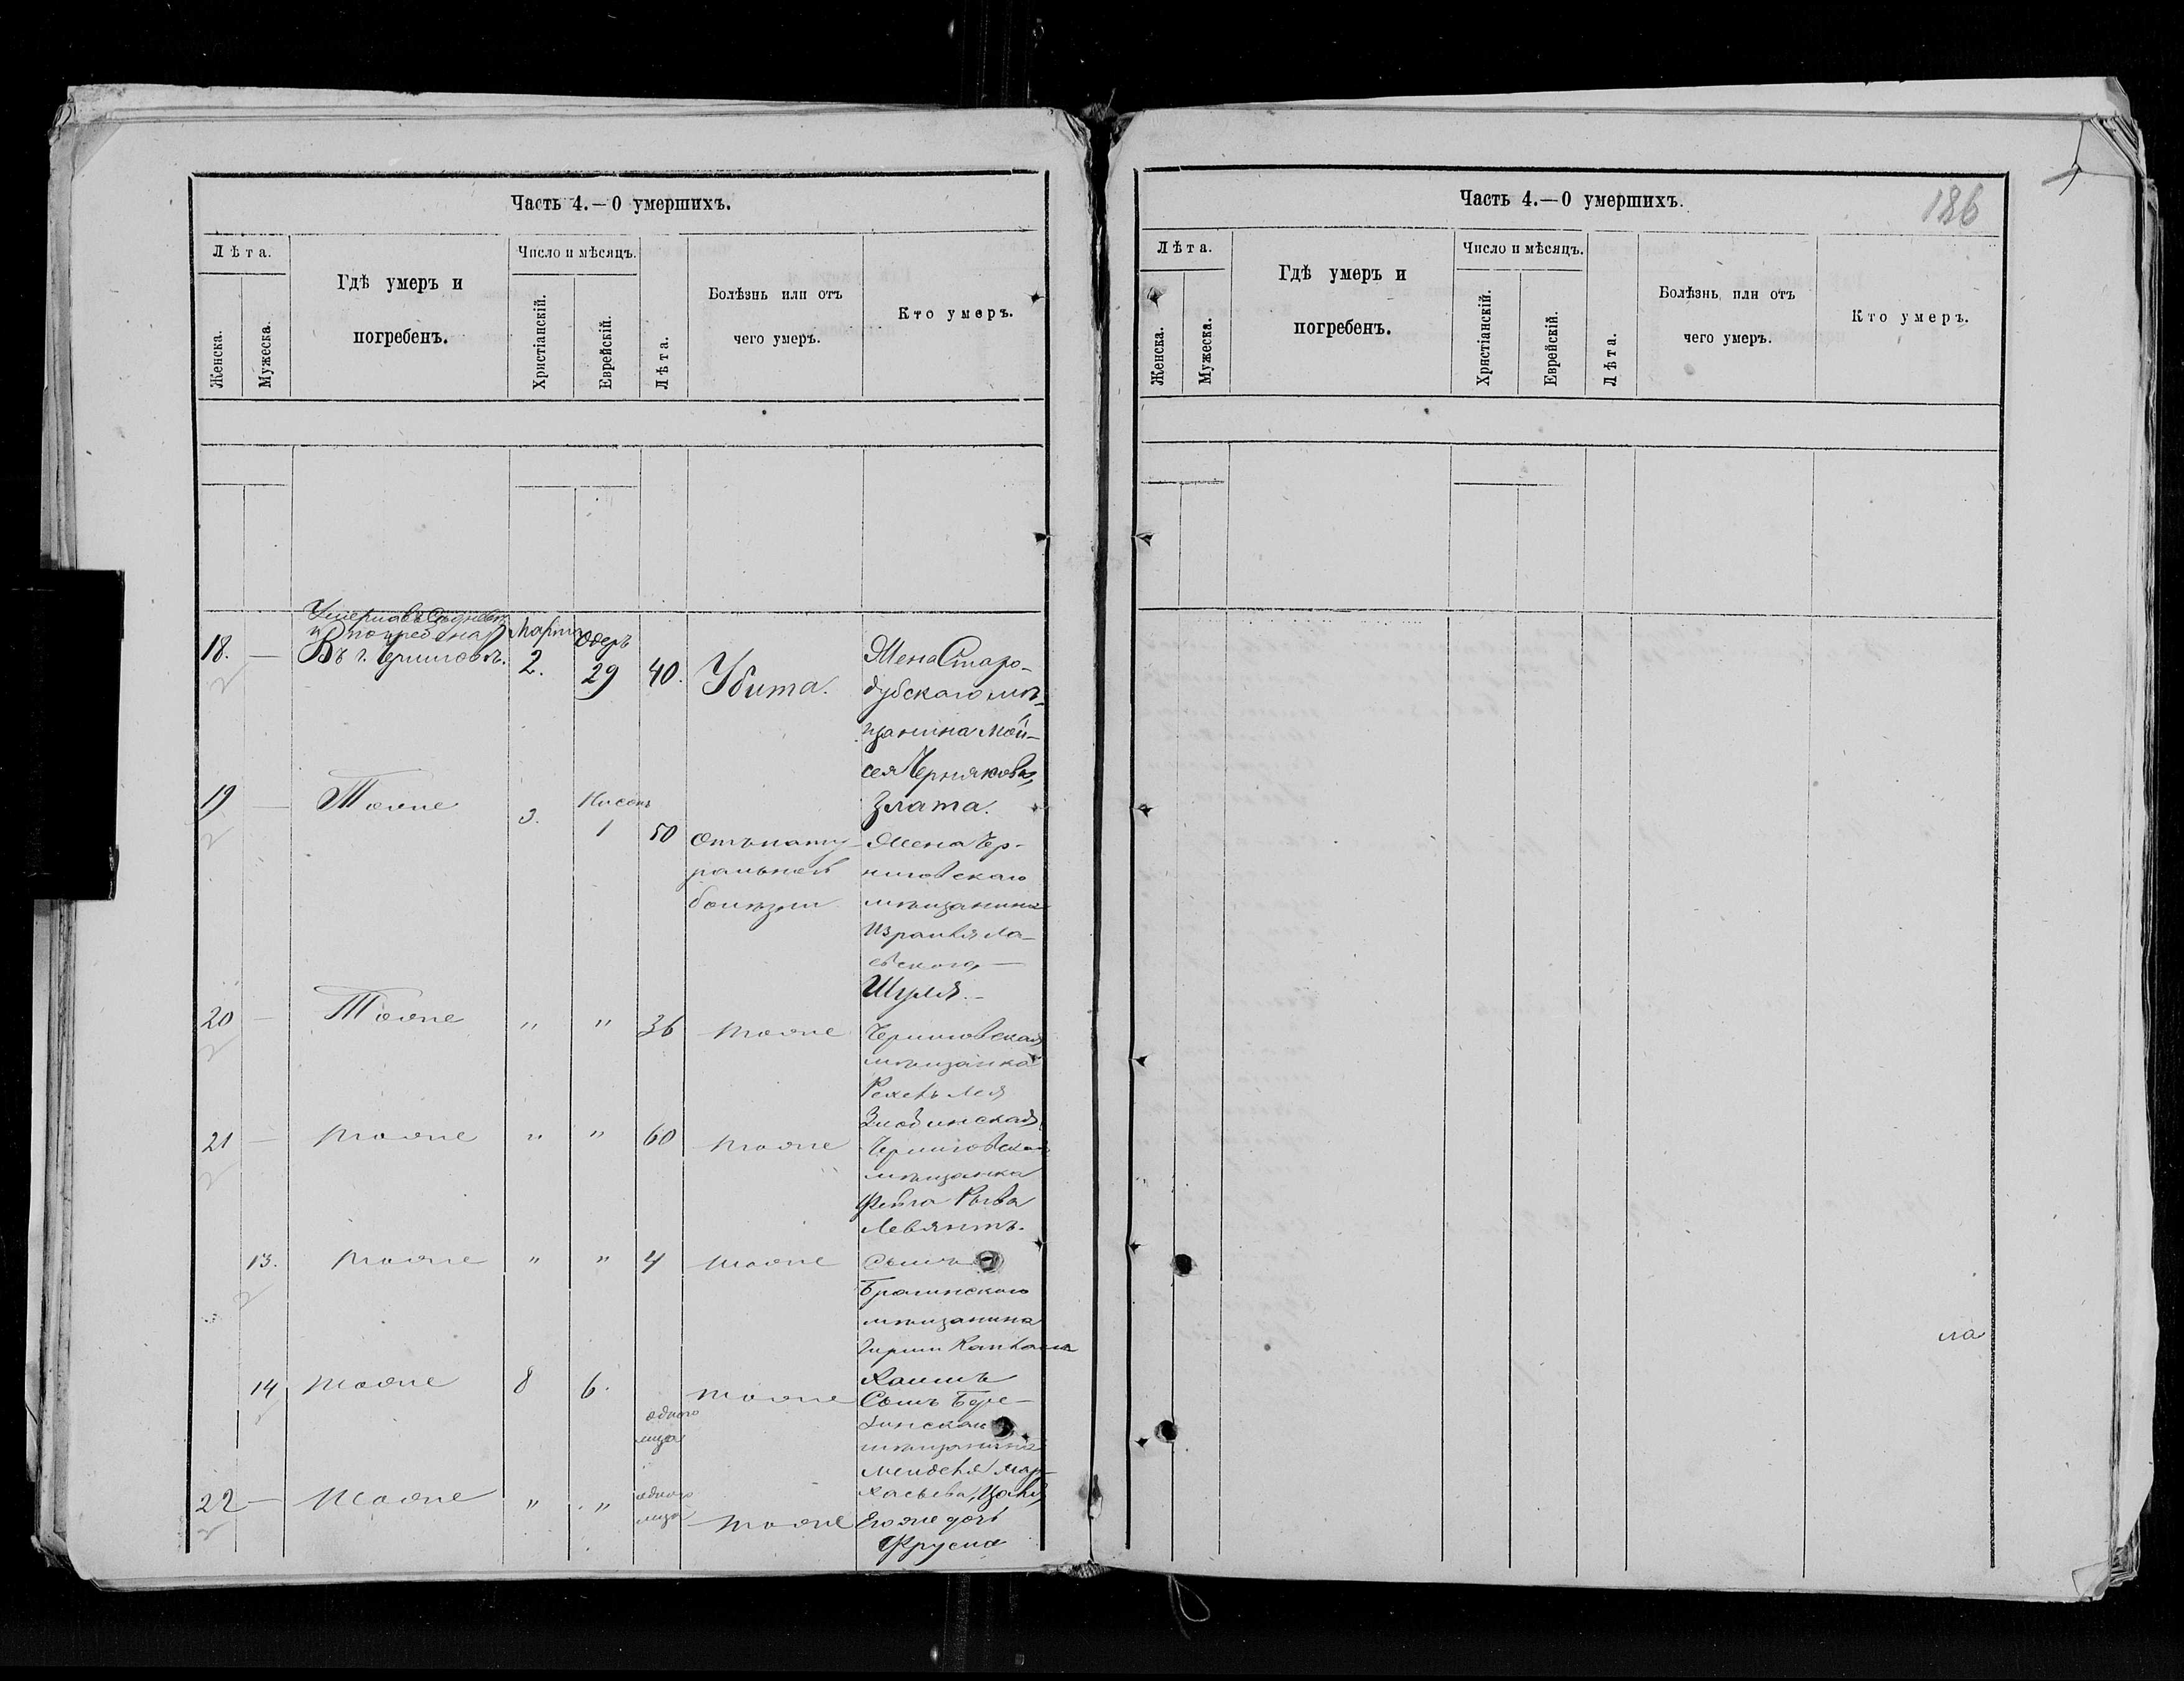 Часть 4.—О умершихъ.
Лѣта.
Женска.
Мужеска.
Гдѣ умеръ и
погребенъ.
Число и мѣсяцъ.
Христіанскій.
Еврейскій.
Лѣта.
Болѣзнь или отъ
чего умеръ.
Кто умеръ.
18. —
Умерла въ
и погребена
Въ г. Черниговѣ.
Марта
2.
Одеръ
29
40.
Убита.
Жена Старо-
дубскаго мѣ-
щанина Мой-
сея Чернякова,
Злата.
19 —
Тоже
3.
Нисенъ
1
50
Отъ нату-
ральной
болѣзни
Жена Чер-
ниговскаго
мѣщанина
Израиля Ла-
евскаго,—
Шуля.—
20 —
Тоже
"
"
36
тоже
Черниговская
мѣщанка
Лея
21 —
тоже
"
"
60
тоже
Черниговская
мѣщанка
Фейга Рыва
Левянтъ.
13.
тоже
"
"
4
тоже
Сынъ
Брагинскаго
мѣщанина
Гирши
Хаимъ
14
тоже
8
6.
одного
тоже
Сынъ Бере-
зинскаго
мѣщанина
Менделя Мар-
22 —
тоже
"
"
одного
тоже
Его же дочь
Фрума
Часть 4.—О умершихъ.
186
Лѣта.
Женска.
Мужеска.
Гдѣ умеръ и
погребенъ.
Число и мѣсяцъ.
Христіанскій.
Еврейскій.
Лѣта.
Болѣзнь или отъ
чего умеръ.
Кто умеръ.
ла